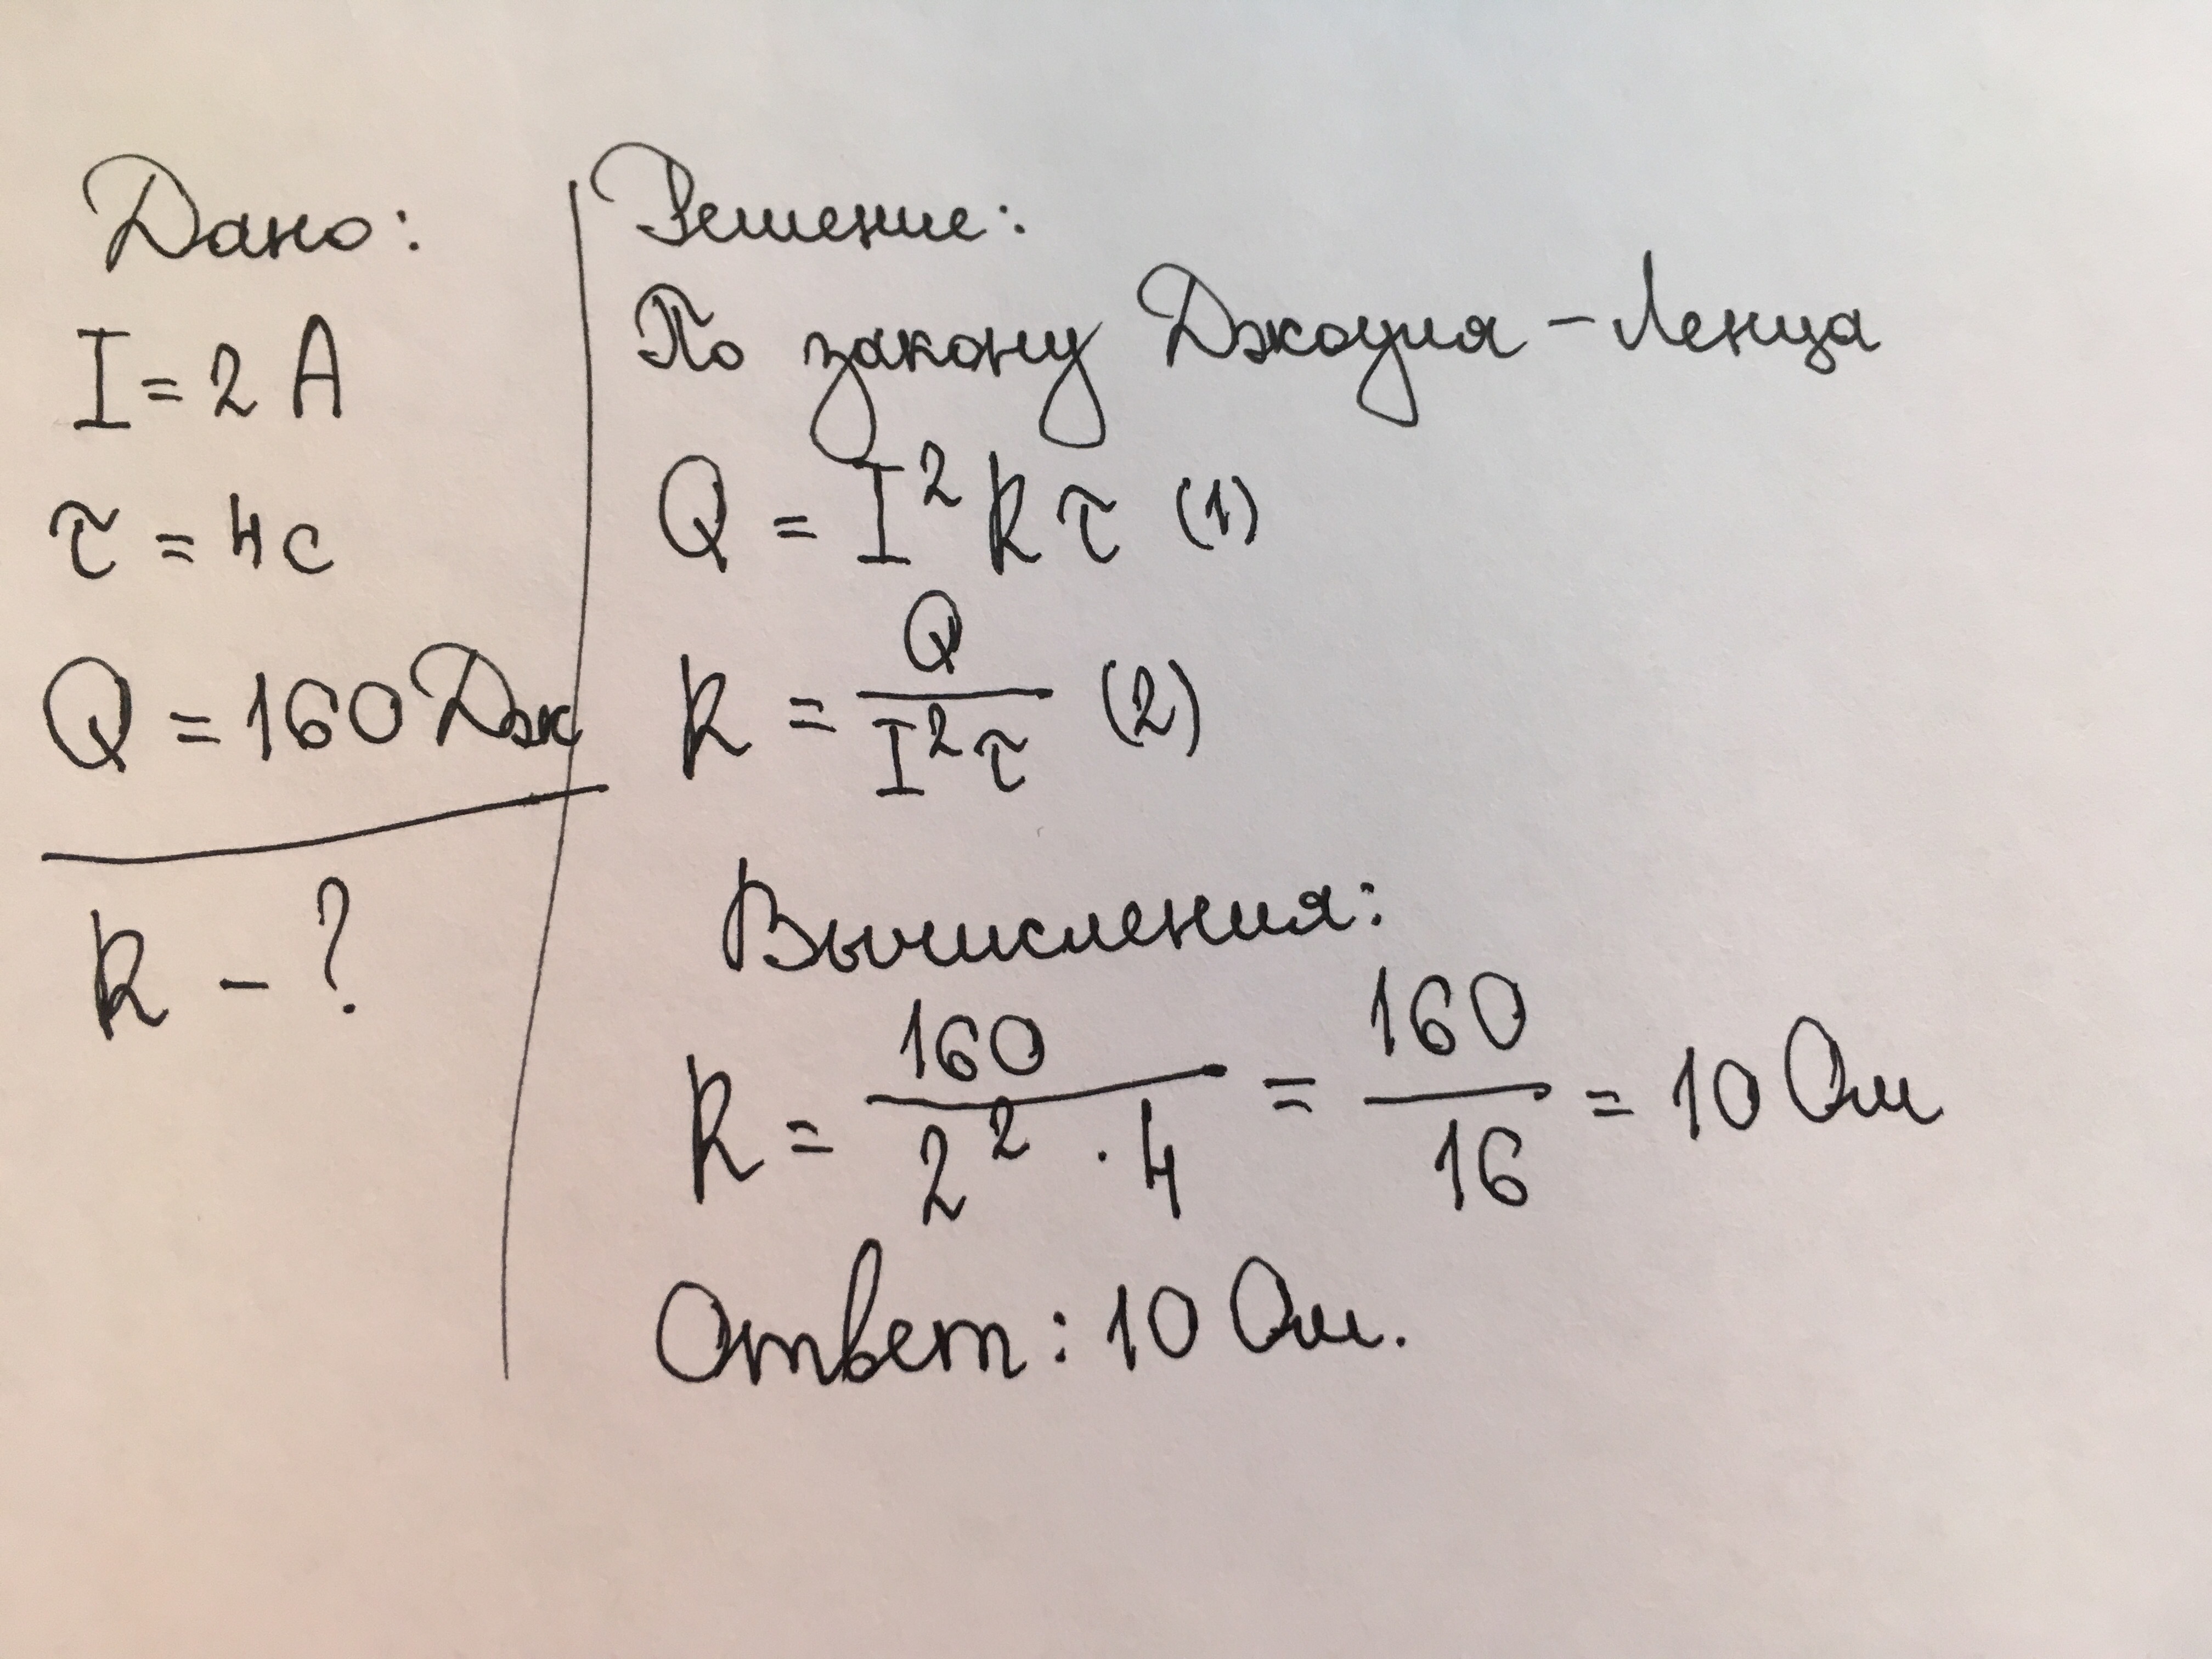 Дано:
I = 2 А
τ = 4 с
Q = 160 Дж
R - ?
Решение:
По закону Джоуля - Ленца
Q = I² R τ (1)
R = Q / I² τ (2)
Вычисления:
R = 160 / 2² · 4 = 160 / 16 = 10 Ом
Ответ: 10 Ом.